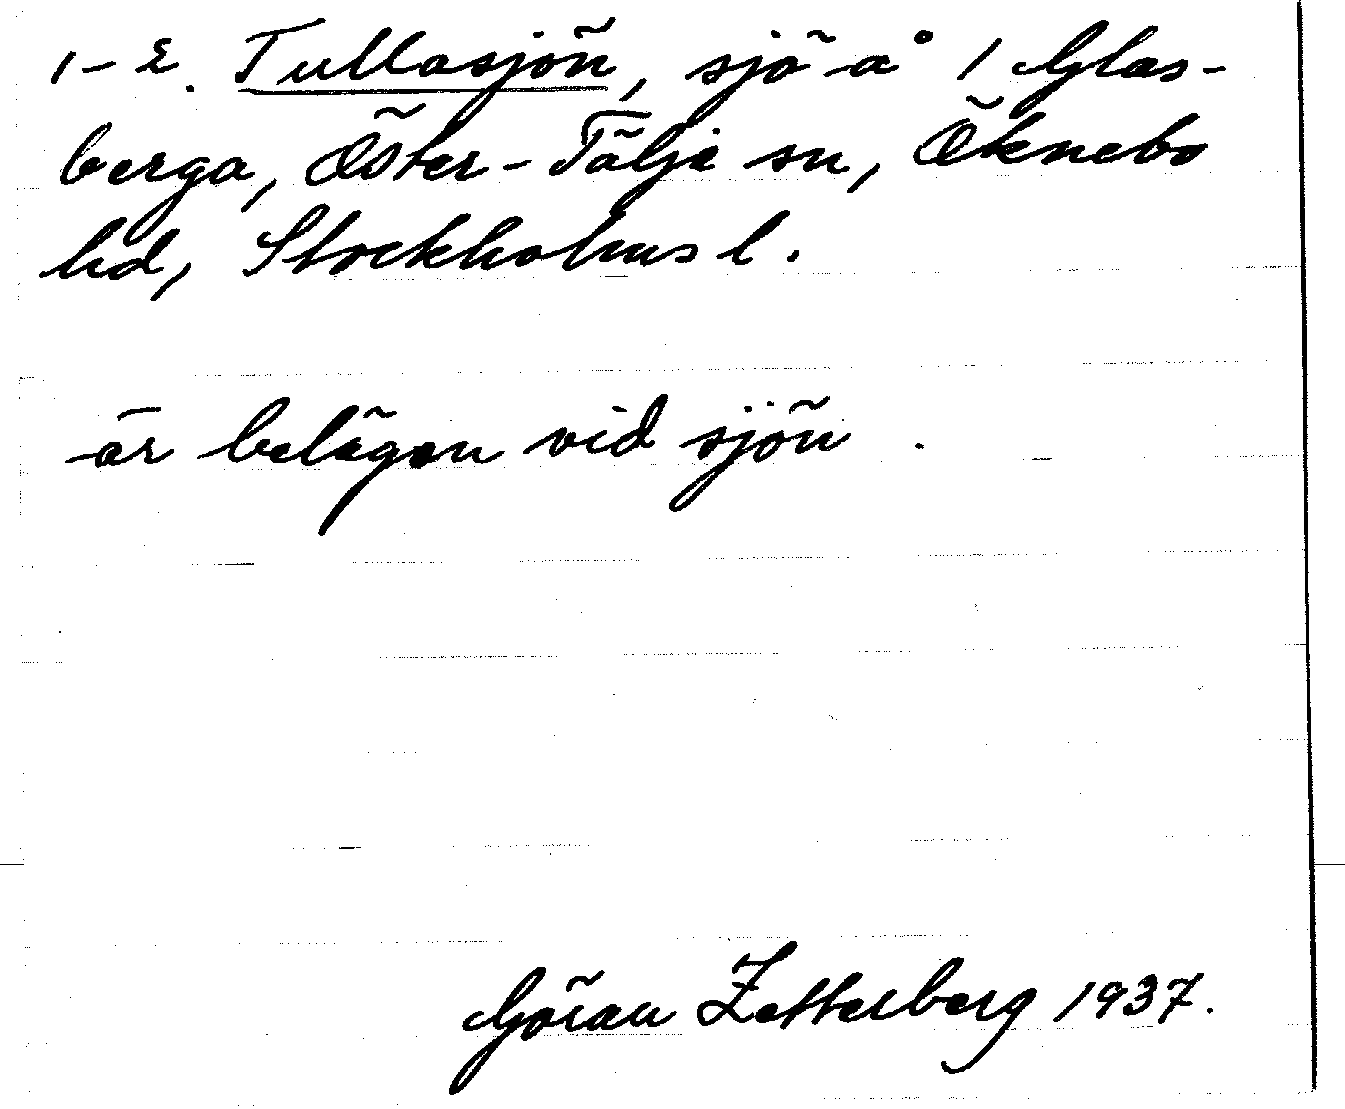 1-2. Tullasjön, sjö å 1 Glas-
berga, Öster-Tälje sn, Öknebo
hd, Stockholms l.
är belägen vid sjön .
Göran Zetterberg 1937.